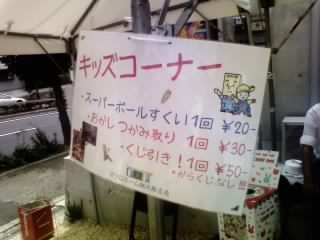 キッズコーナー
・スーパーボールすくい1回 ¥20-
・おかしつかみ取り 1回 ¥30-
・くじ引き!1回 ¥50-
・からくじなし!!!